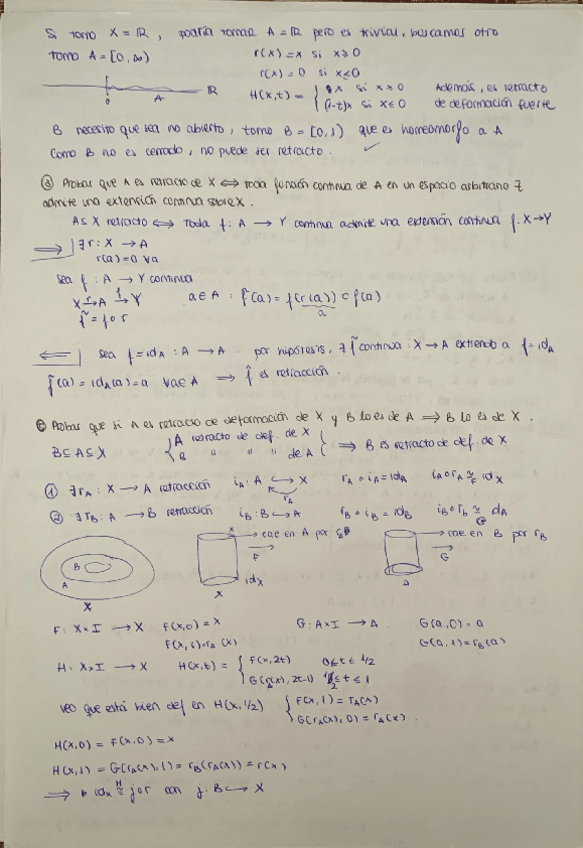 Si tomo X = ℝ, podría tomar A = ℝ pero es trivial, buscamos otro
tomo A = [0, ∞)
r(x) = x si x ≥ 0
r(x) = 0 si x ≤ 0
0 A ℝ
H(x,t) = { x si x ≥ 0
(1-t)x si x ≤ 0
Además, es retracto
de deformación fuerte
B necesito que sea no abierto, tomo B = [0,1) que es homeomorfo a A
Como B no es cerrado, no puede ser retracto. ✓
③ Probar que A es retracto de X ⟺ toda función continua de A en un espacio arbitrario Z
admite una extensión continua sobre X.
A ⊆ X retracto ⟺ Toda f: A → Y continua admite una extensión continua f: X → Y
⟹ ∃ r: X → A
r(a) = a ∀a
sea f: A → Y continua
X →r A →f Y
a ∈ A : f̃(a) = f(r(a)) = f(a)
a
f̃ = f ∘ r
⟸ sea f = id_A : A → A por hipótesis, ∃ f̃ continua: X → A extiendo a f = id_A
f̃(a) = id_A(a) = a ∀a ∈ A ⟹ f̃ es retracción.
⑥ Probar que si A es retracto de deformación de X y B lo es de A ⟹ B lo es de X.
B ⊆ A ⊆ X { A retracto de def. de X
B " " " de A } ⟹ B es retracto de def. de X
① ∃ r_A : X → A retracción i_A : A ↪ X r_A ∘ i_A = id_A i_A ∘ r_A ≃ id_X
r_A F
② ∃ r_B : A → B retracción i_B : B ↪ A r_B ∘ i_B = id_B i_B ∘ r_B ≃ id_A
G
B A X
x cae en A por
F
id_X
X
cae en B por r_B
G
A
F: X×I → X F(x,0) = x G: A×I → A G(a,0) = a
F(x,1) = r_A(x) G(a,1) = r_B(a)
H: X×I → X H(x,t) = { F(x,2t) 0 ≤ t ≤ 1/2
G(r_A(x), 2t-1) 1/2 ≤ t ≤ 1
veo que está bien def en H(x,1/2) { F(x,1) = r_A(x)
G(r_A(x), 0) = r_A(x).
H(x,0) = F(x,0) = x
H(x,1) = G(r_A(x),1) = r_B(r_A(x)) = r(x)
⟹ id_X ≃ j∘r con j: B ↪ X
H